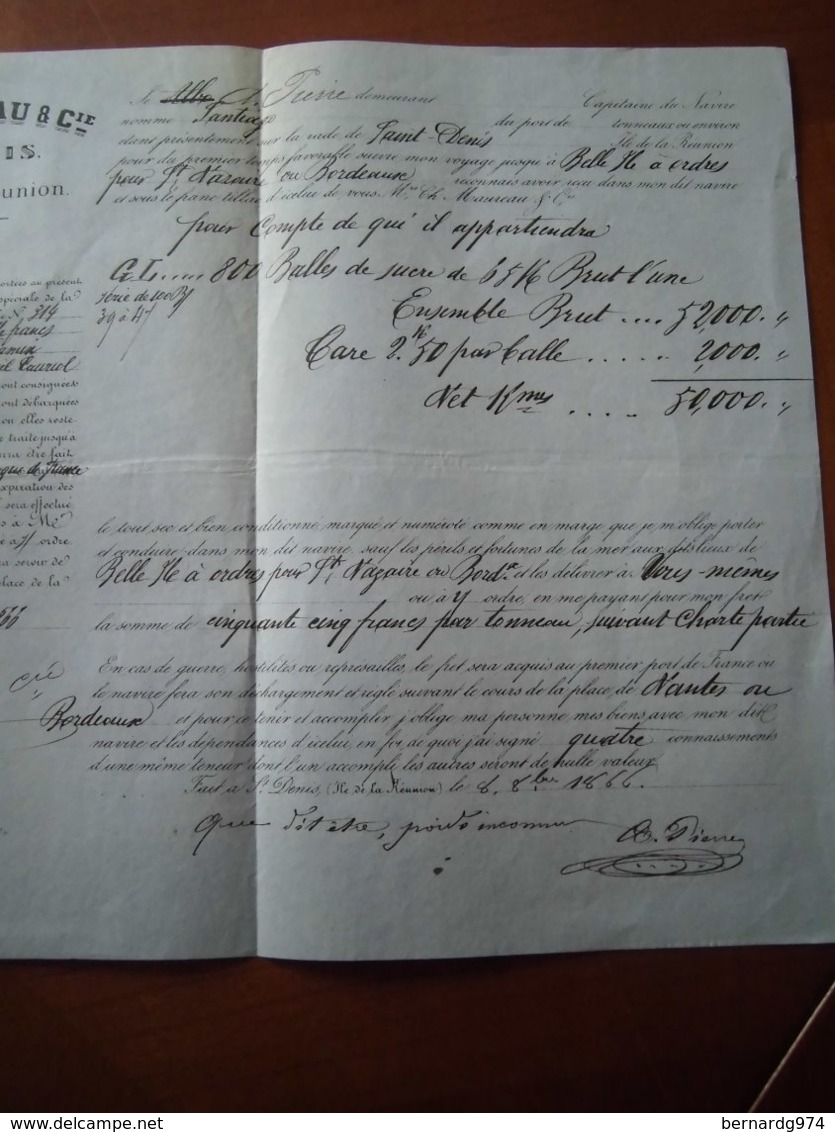 AU & CIE
IS.
union.
ortées au présent
spéciale de la
N. 314
francs
Lauriol
ont consignées
ont débarquées
ou elles reste
traite jusqu'à
rra être fait
que de France
expiration des
sera effectué
s à Mr
à s/ ordre
ra servir de
place de la
Je A. Pierre demeurant Capitaine du Navire
nommé du port de tonneaux ou environ
dans présentement sur la rade de Saint Denis Ile de la Réunion
pour du premier temps favorable suivre mon voyage jusqu'à Belle Ile à ordres
pour St Nazaire ou Bordeaux reconnais avoir reçu dans mon dit navire
et sous le franc tillac d'icelui de vous Mrs Ch. Maureau & Cie
pour Compte de qui il appartiendra
G.L..... 800 Balles de sucre de 65 K Brut l'une
série de 100 B/
39 à 4
Ensemble Brut .... 52,000. "
Tare 2.K 50 par balle ...... 2,000. "
Net Kmes ..... 50,000. "
le tout sec et bien conditionné marqué et numéroté comme en marge que je m'oblige porter
et conduire dans mon dit navire, sauf les périls et fortunes de la mer aux dits lieux de
Belle Ile à ordres pour St Nazaire ou Bordx et les délivrer à Vous-mêmes
ou à V/ ordre, en me payant pour mon fret
la somme de cinquante cinq francs par tonneau, suivant Charte partie
En cas de guerre, hostilités ou représailles, le fret sera acquis au premier port de France ou
le navire fera son déchargement et réglé suivant le cours de la place de Nantes ou
Bordeaux et pour ce tenir et accomplir j'oblige ma personne mes biens avec mon dit
navire et les dépendances d'icelui, en foi de quoi j'ai signé quatre connaissements
d'une même teneur dont l'un accompli les autres seront de nulle valeur
Fait à St Denis, (Ile de la Réunion) le 8. 8bre 1866.
que dit être, poids inconnu A. Pierre
delcampe.net
bernardg974